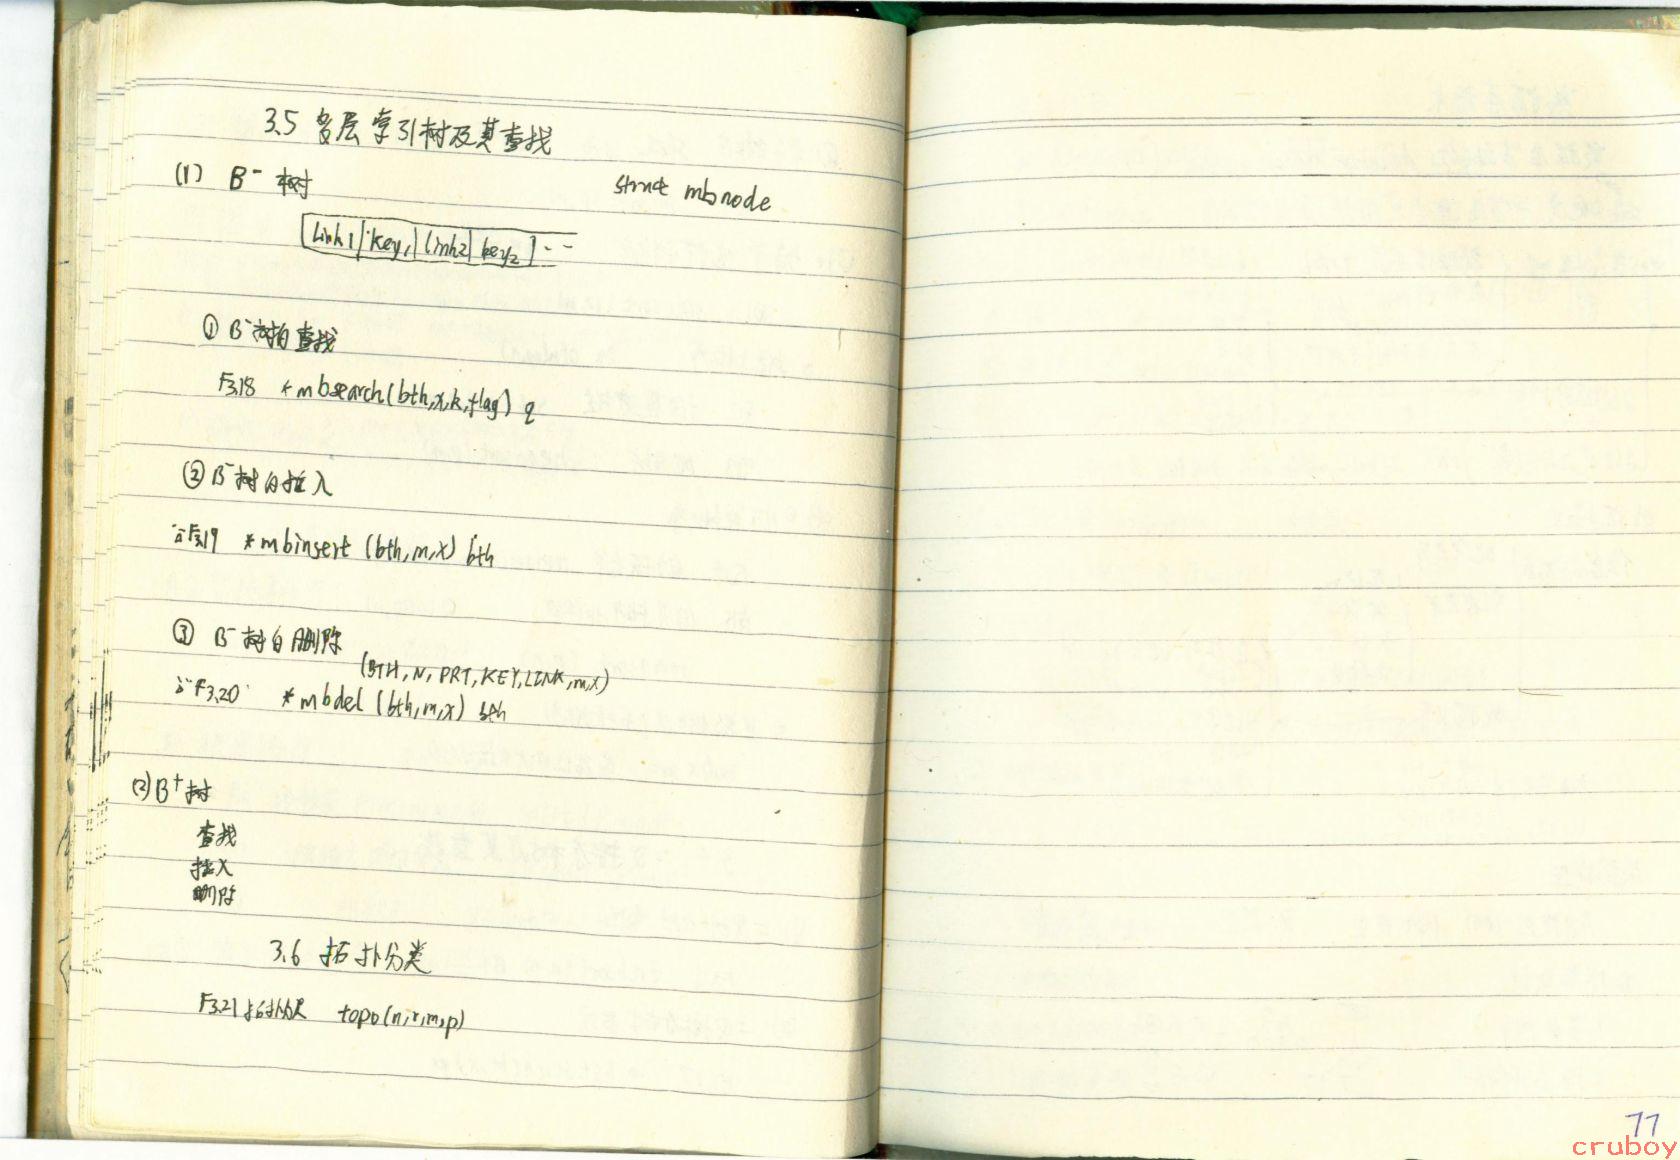 3.5 多层索引树及其查找
(1) B⁻ 树 struct mbnode
link1 key1 link2 key2 ...
① B⁻树的查找
F3.18 *mbsearch(bth,x,k,flag) q
② B⁻树的插入
F3.19 *mbinsert (bth,m,x) bth
③ B⁻树的删除
(BTH, N, PRT, KEY, LINK, m,x)
F3.20 *mbdel (bth,m,x) bth
(2) B⁺树
查找
插入
删除
3.6 拓扑分类
F3.21 拓扑分类 topo(n,r,m,p)
77
cruboy